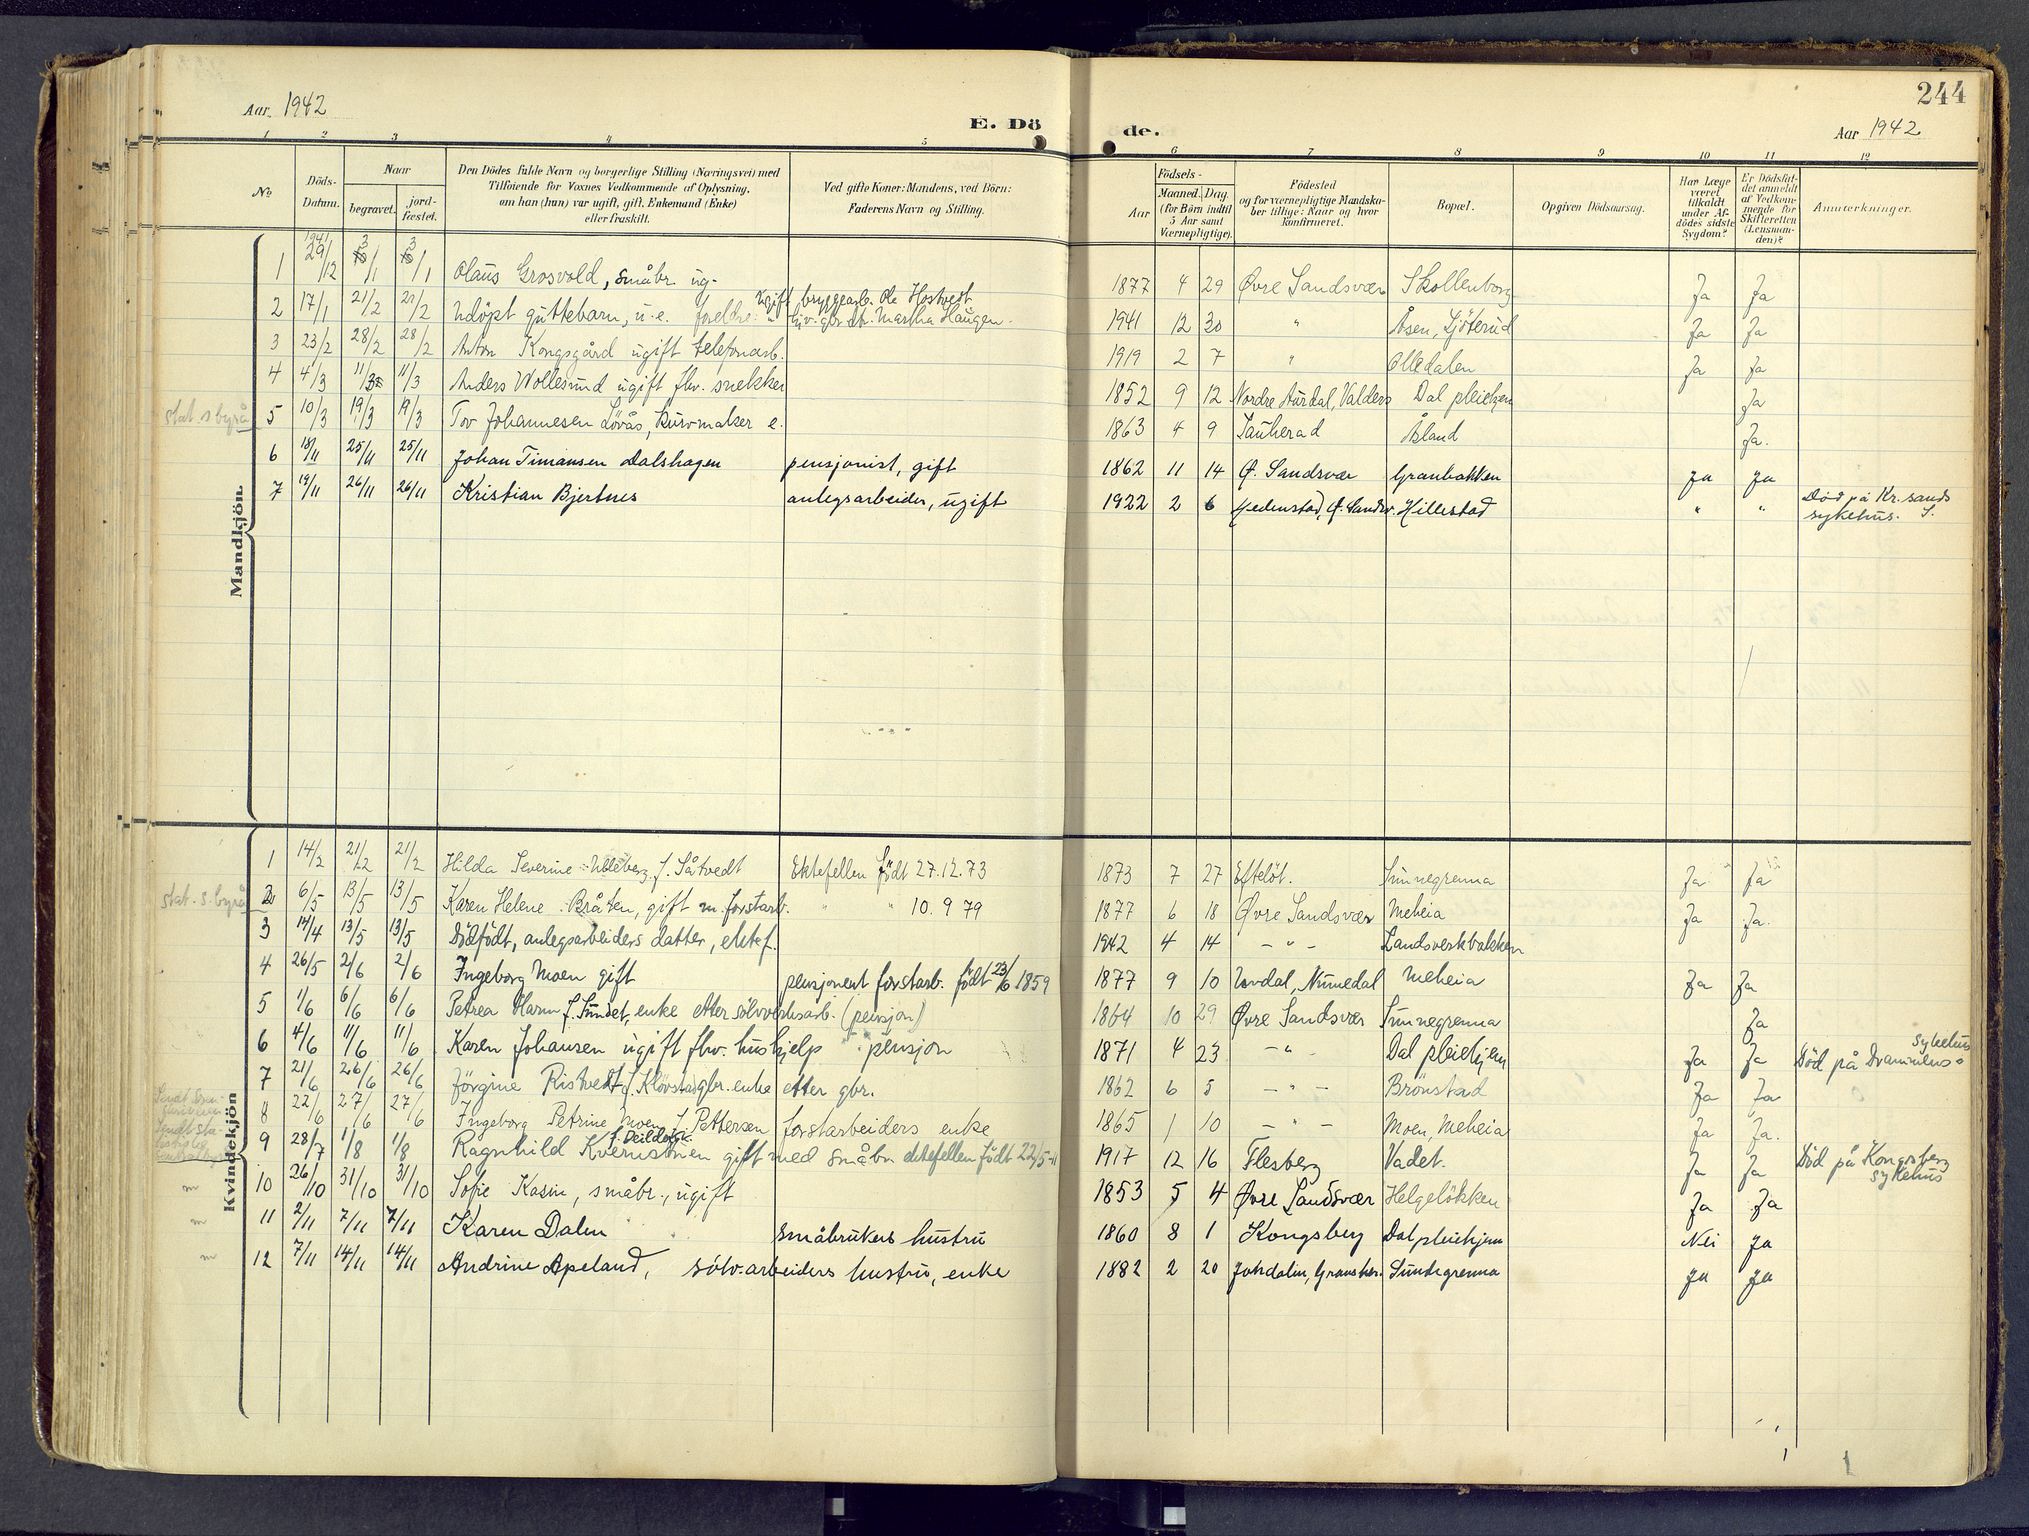 Aar. 1942
E. Döde.
Aar 1942
244
1 2 3 4 5 6 7 8 9 10 11 12
No
Döds-Datum.
Naar
begravet. jordfæstet.
Den Dödes fulde Navn og borgerlige Stilling (Næringsvei) med
Tilföiende for Voxnes Vedkommende af Oplysning.
om han (hun) var ugift, gift. Enkemand (Enke)
eller fraskilt.
Ved gifte Koner: Mandens, ved Börn:
Faderens Navn og Stilling.
Födsels-
Aar Maaned. Dag.
(for Börn indtil
5 Aar samt
Værnepligtige).
Födested
og for værnepligtige Mandskaber tillige: Naar og hvor
konfirmeret.
Bopæl.
Opgiven Dödsaarsag.
Har Læge været tilkaldt under Afdödes sidste Sygdom?
Er Dödsfaldet anmeldt af Vedkommende for Skifteretten (Lensmanden)?
Anmærkninger.
Mandkjön.
1 1941 29/12 3/1 3/1 Olaus Grosvold, småbr. ug. 1877 4 29 Øvre Sandsvær Skollenborg Ja Ja
2 17/1 21/2 21/2 Udöpt guttebarn, u.e. foreldre: ugift bryggearb. Ole Hostvedt
Martha Haugen. 1941 12 30 " Åsen, Ljöterud Ja Ja
3 23/2 28/2 28/2 Anton Kongsgård ugift telefonarb. 1919 2 7 " Olledalen Ja Ja
4 4/3 11/3 11/3 Anders Wollesund ugift fhv. snekker 1852 9 12 Nordre Aurdal, Valders Dal pleiehjem Ja
stat. s byrå 5 10/3 19/3 19/3 Tov Johannesen Lövås, kurvmaker e. 1863 4 9 Sauherad Åsland Ja.
6 18/11 25/11 25/11 Johan Timansen Dalshagen pensjonist, gift 1862 11 14 Ø. Sandsvær Granbakken Ja Ja
7 19/11 26/11 26/11 Kristian Bjertnes anlegsarbeider, ugift 1922 2 6 Hedenstad, Ø. Sandsv. Hillestad " " Död på Kr.sands
sykehus. S.
Kvindekjön
1 14/2 21/2 21/2 Hilda Severine Ulleberg f. Såtvedt Ektefellen födt 27.12.73 1873 7 27 Efteløt. Sunnegrenna Ja Ja
stat. s. byrå 2 6/5 13/5 13/5 Karen Helene Bråten, gift m. forstarb. " " 10. 9 79 1877 6 18 Øvre Sandsvær Meheia Ja Ja.
3 14/4 13/5 13/5 Dödfödt, anlegsarbeiders datter, ektef. 1942 4 14 - " - Landsverkbakken
4 26/5 2/6 2/6 Ingeborg Moen gift pensjonert forstarb. födt 23/6 1859 1877 9 10 Uvdal, Numedal Meheia Ja Ja
5 1/6 6/6 6/6 Petrea Havn f. Sundet, enke etter sölvverksarb. (pensjon) 1864 10 29 Øvre Sandsvær Sunnegrenna Ja
6 4/6 11/6 11/6 Karen Johansen ugift fhv. hushjelp pensjon 1871 4 23 - " - Dal pleiehjem Ja Ja Död på Drammens sykehus
7 21/6 26/6 26/6 Jörgine Ristvedt f. Klövstad gbr. enke etter gbr. 1862 6 5 - " - Brönstad Ja Ja
8 22/6 27/6 27/6 Ingeborg Petrine Moen f. Pettersen forstarbeiders enke 1865 1 10 - " - Moen, Meheia Ja Ja.
9 28/7 1/8 1/8 Ragnhild Kvernstuen gift med småbr. ektefellen födt 22/5-11 1917 12 16 Flesberg Vadet. Ja Ja Död på Kongsberg
sykehus
10 26/10 31/10 31/10 Sofie Kasin, småbr., ugift 1853 5 4 Øvre Sandsvær Helgelökken Ja Ja
11 2/11 7/11 7/11 Karen Dalen småbrukers hustru 1860 8 1 Kongsberg Dal pleiehjem Nei Ja
12 7/11 14/11 14/11 Andrine Apeland, sölv-arbeiders hustru, enke 1882 2 20 Jondalen, Gransher. Sundegrenna Ja Ja